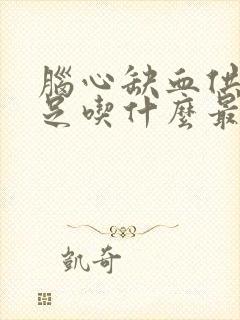 腦心缺血供
足喫什麼最
凱奇